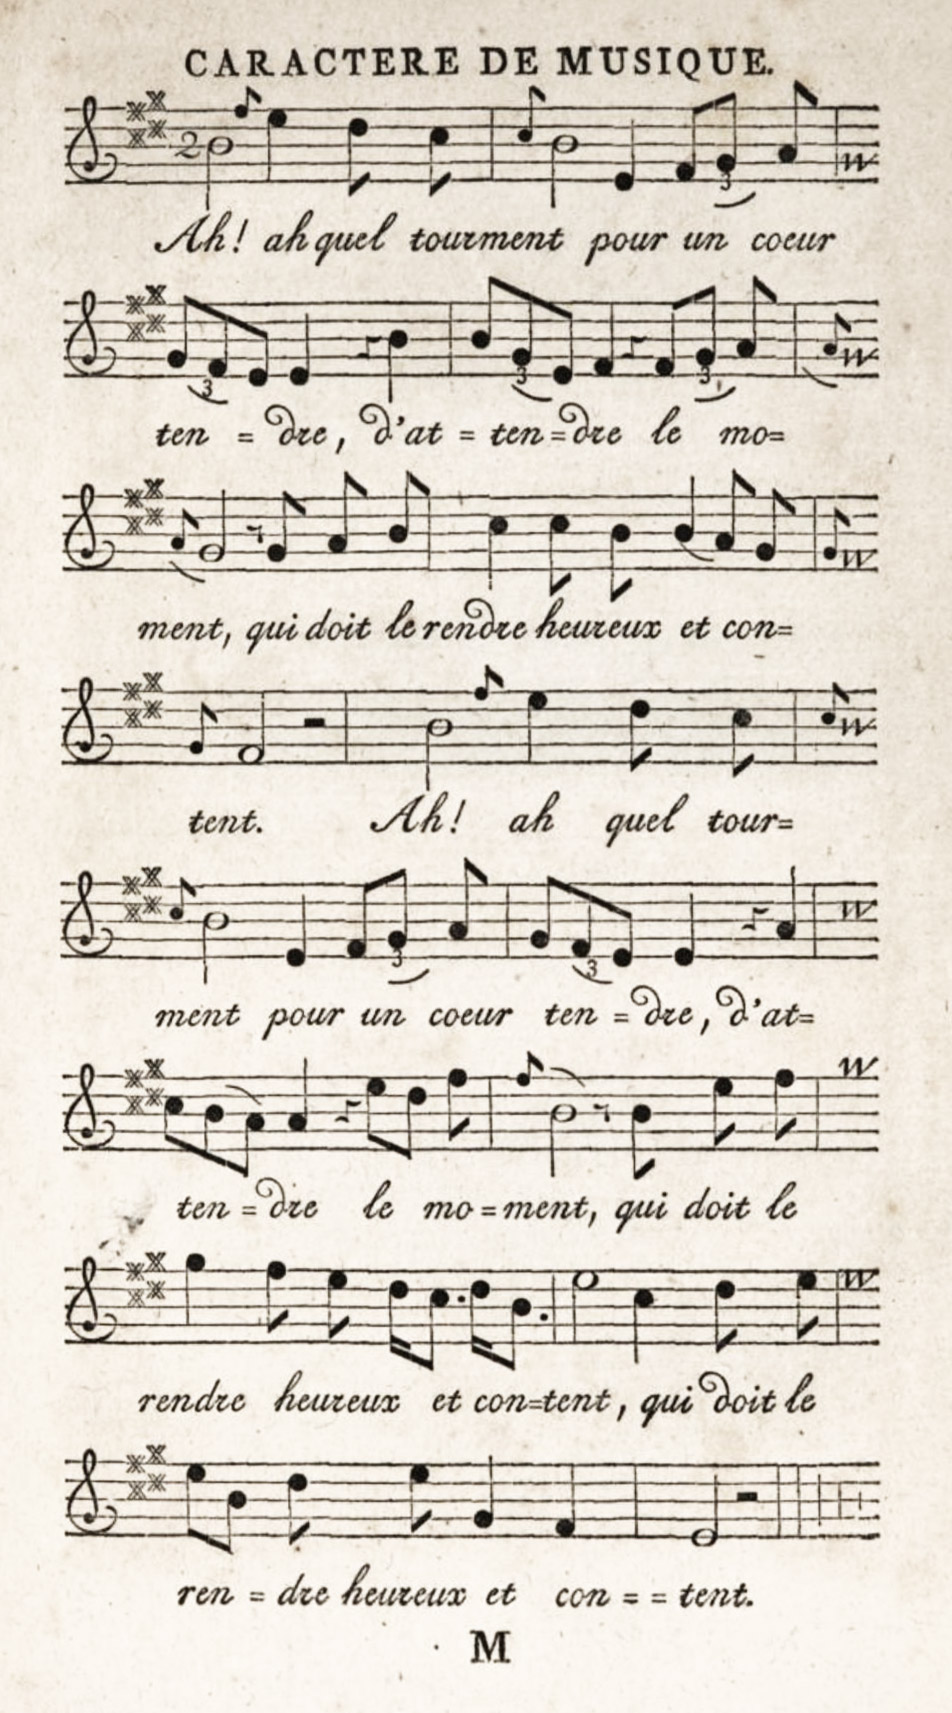 CARACTERE DE MUSIQUE.
2
3
Ah! ah quel tourment pour un coeur
3 3 3
ten = dre, d'at = ten = dre le mo=
ment, qui doit le rendre heureux et con=
tent. Ah! ah quel tour=
3 3
ment pour un coeur ten = dre, d'at=
ten = dre le mo = ment, qui doit le
rendre heureux et con=tent, qui doit le
ren = dre heureux et con = = tent.
M